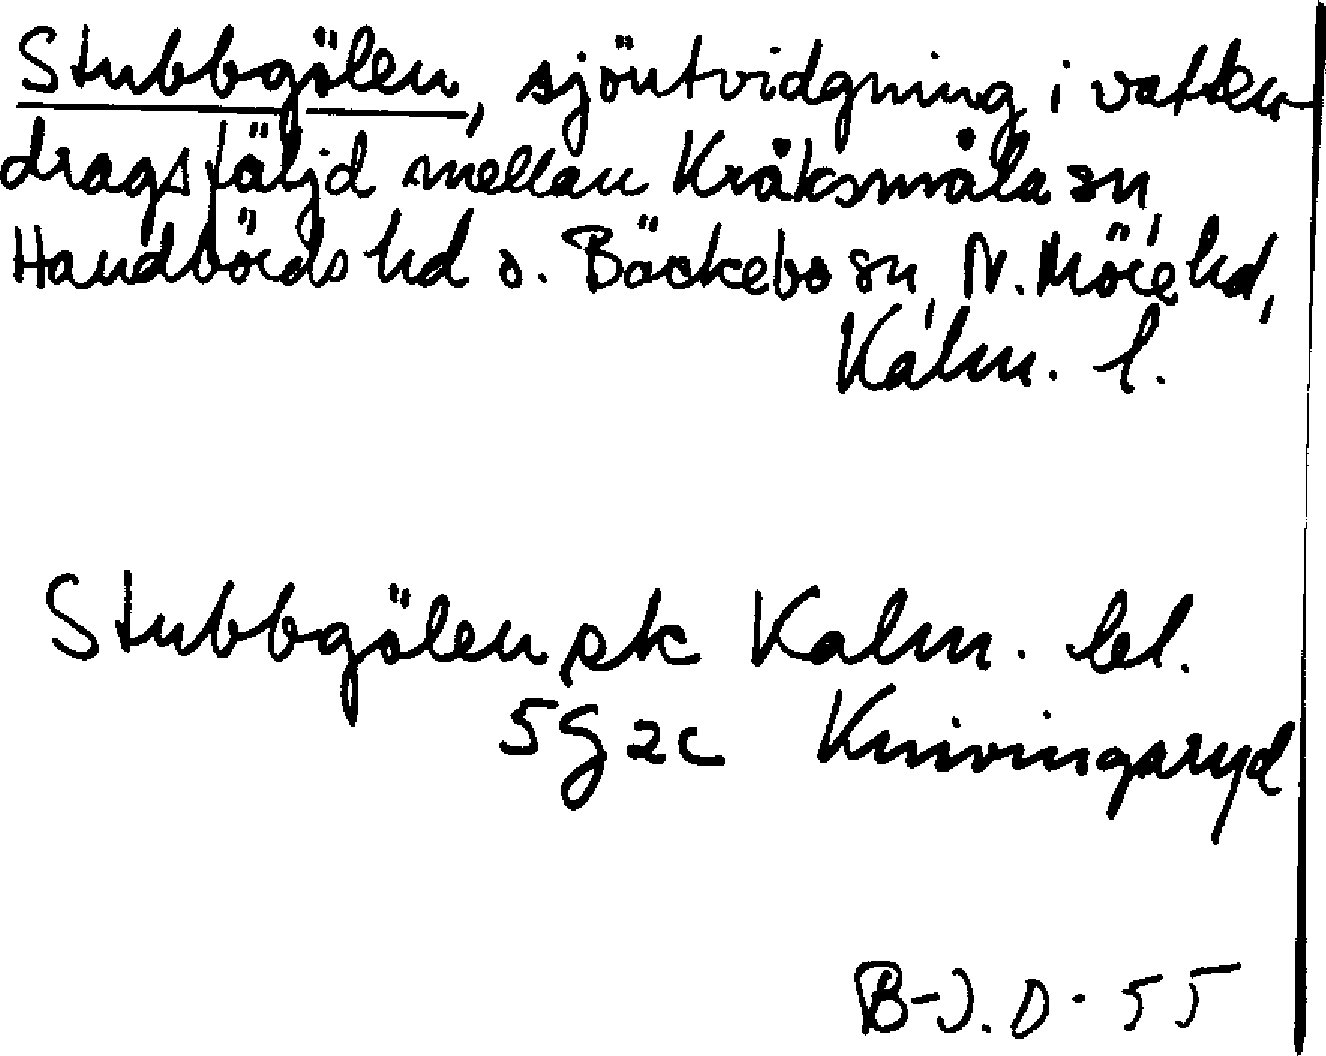 Stubbgölen, sjöutvidgning i vatten-
dragsfäljd mellan Kråksmåla sn,
Handbörds hd o. Bäckebo sn, N. Möre hd,
Kalm. l.
Stubbgölen sk Kalm. lel.
5G2c Knivingaryd
B-J.D-55